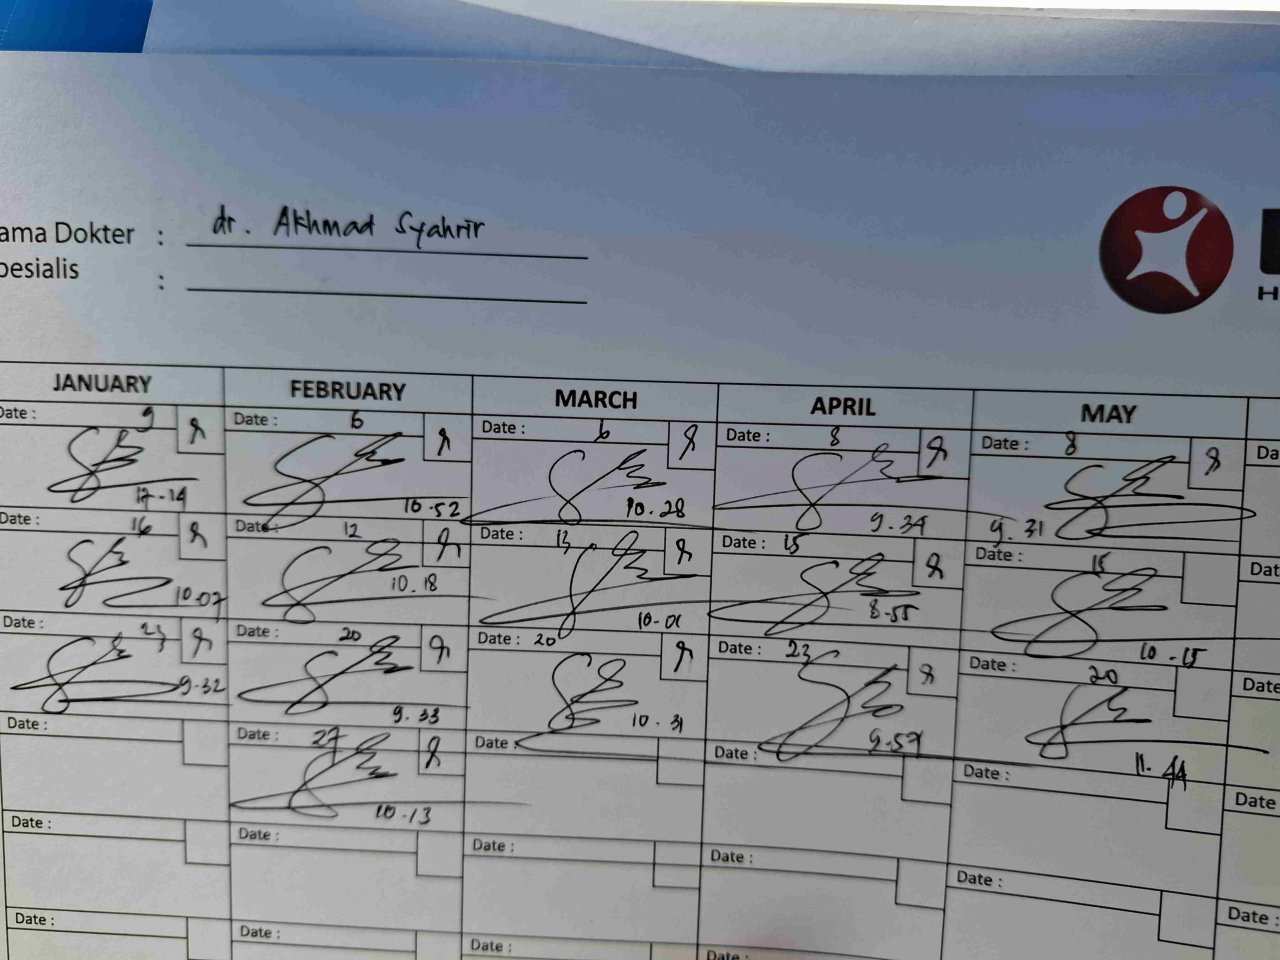 ama Dokter : dr. Akhmad Syahrir
pesialis :
H
JANUARY FEBRUARY MARCH APRIL MAY
Date : 9 Date : 6 Date : 6 Date : 8 Date : 8 Da
12-14 10-52 10.28 9.34 9.31
Date : 16 Date : 12 Date : 13 Date : 15 Date : 15 Dat
10-07 10.18 10-01 8-55 10-15
Date : 23 Date : 20 Date : 20 Date : 23 Date : 20 Date
9-32 9.33 10.31 9-57 11.44
Date : Date : 27 Date : Date : Date : Date
10-13
Date : Date : Date : Date : Date : Date :
Date : Date : Date : Date